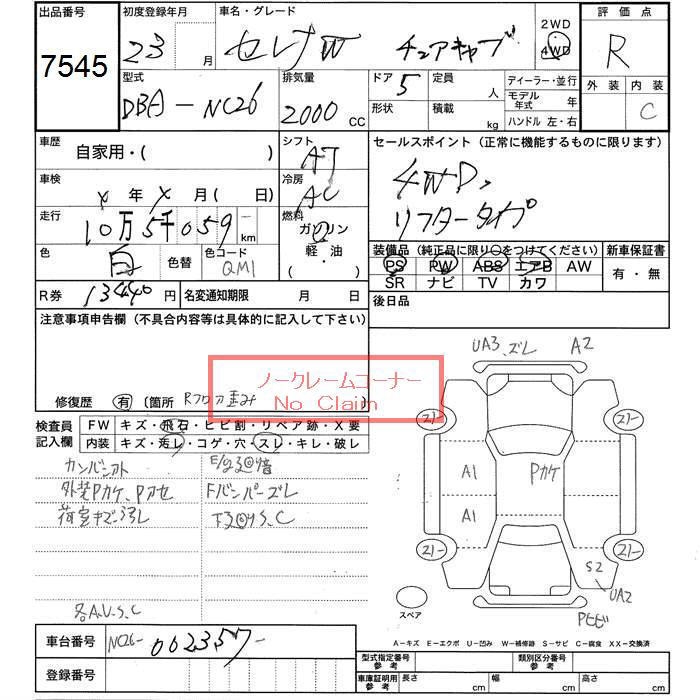 出品番号
7545
初度登録年月
23 月
車名・グレード
セレナW チェアキャブ
2WD
4WD
評価点
R
外装 内装
C
型式
DBA-NC26
排気量
2000 CC
ドア
5
形状
定員
人
積載
kg
ディーラー・並行
モデル年式 年
ハンドル 左・右
車歴
自家用・( )
シフト
AT
セールスポイント (正常に機能するものに限ります)
4WD、
リフタータイプ
車検
X 年 X 月( 日)
冷房
AC
走行
10万5千059 km
燃料
ガソリン
軽・油
( )
装備品 (純正品に限り〇をつけてください)
新車保証書
PS PW ABS エアB AW
SR ナビ TV カワ
有・無
色
白
色替
色コード
QM1
R券
13440円
名変通知期限 月 日
後日品
注意事項申告欄 (不具合内容等は具体的に記入して下さい)
ノークレームコーナー
No Claim
修復歴 有 〔箇所 Rフロア歪み
検査員
記入欄
FW キズ・飛石・ヒビ割・リペア跡・X要
内装 キズ・汚レ・コゲ・穴・スレ・キレ・破レ
外装Pカケ、Pアセ
Fバンパーズレ
荷室キズ・汚レ
下回りS、C
各A.U.S.C
UA3、ズレ A2
21-
21-
A1
Pカケ
A1
21-
21-
S2
UA2
Pヒビ
スペア
A-キズ E-エクボ U-凹み W-補修跡 S-サビ C-腐食 XX-交換済
車台番号
NC26-002357-
登録番号
型式指定番号
参考
類別区分番号
参考
車庫証明用
参考
長さ cm
幅 cm
高さ cm